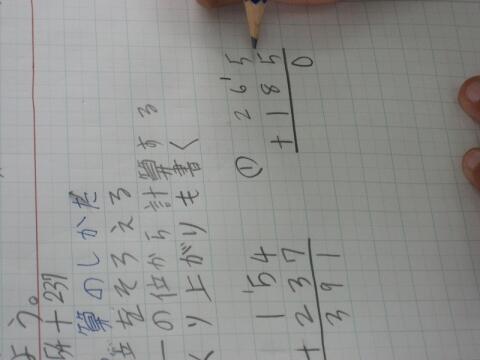 よう。
54＋237
算のしかた
位をそろえる
一の位から計算する
くり上がりも書く
1 5 4
＋ 2 3 7
3 9 1
①
2 6 5
＋ 1 8 5
0